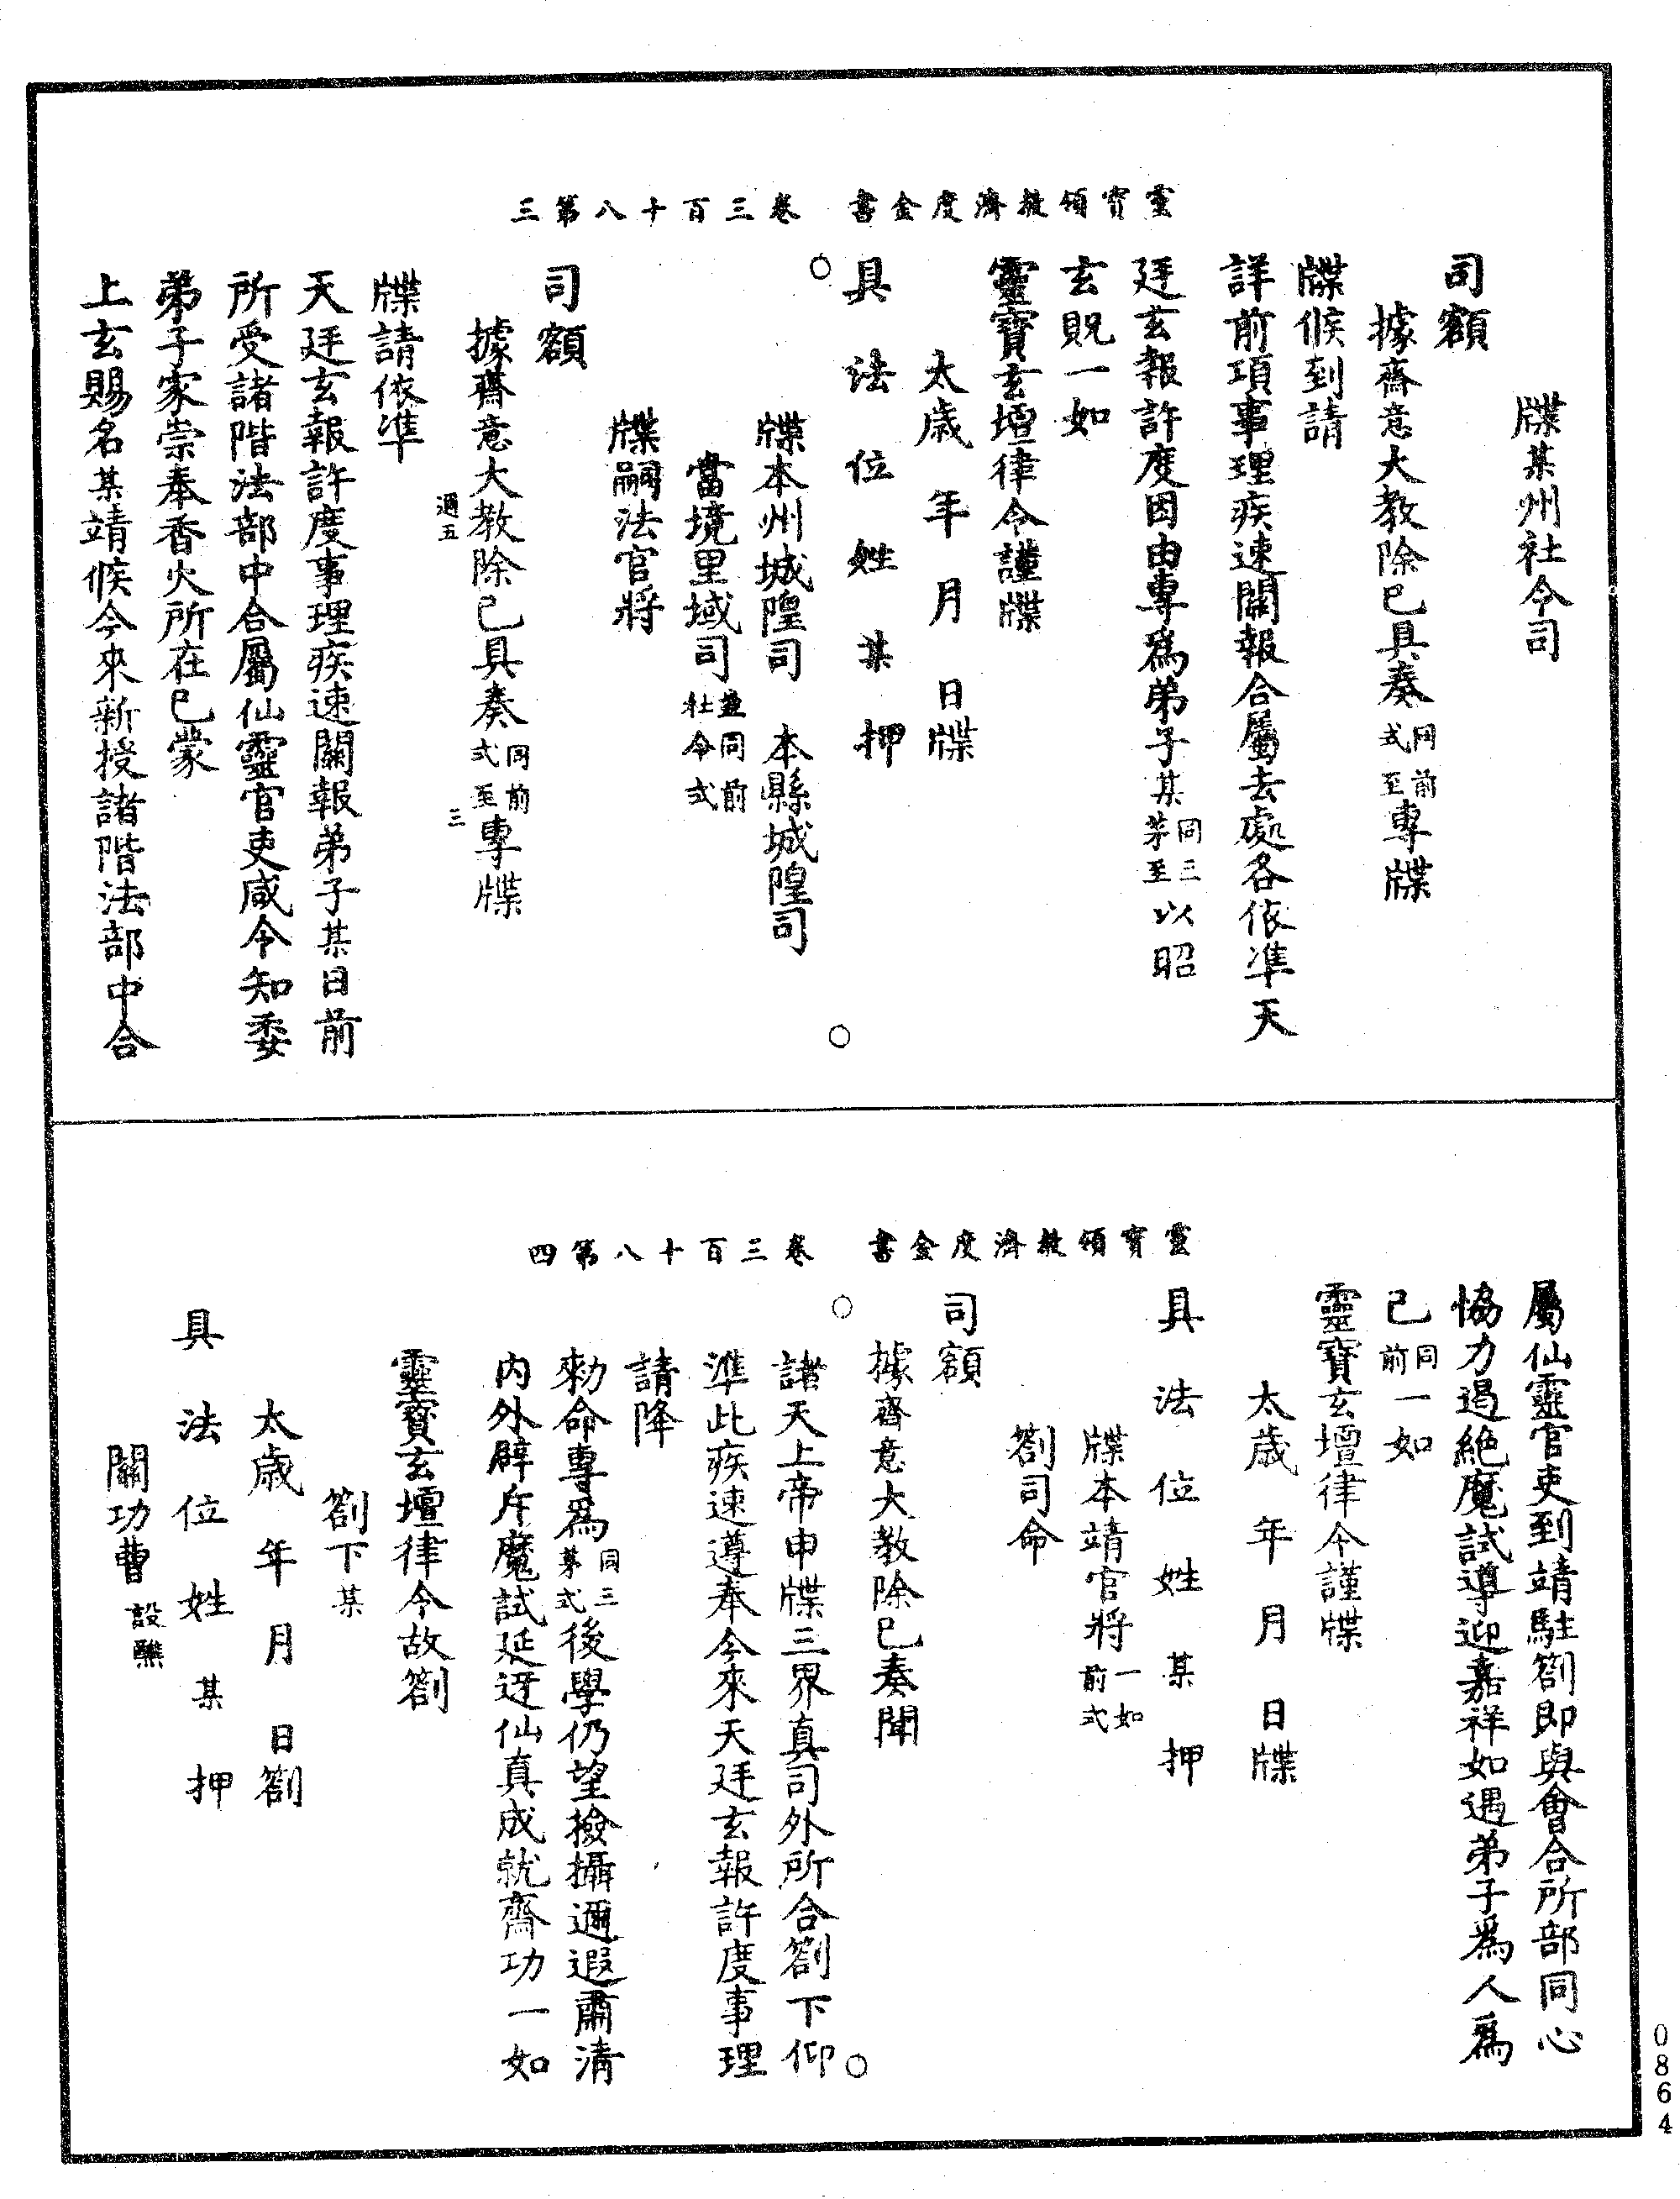 靈寶領教濟度金書　卷三百十八第三
牒某州社令司
司額
據齋意大教除已具奏同前式至專牒
牒候到請
詳前項事理疾速關報合屬去處各依準天
廷玄報許度因由專為弟子某同三茅至以昭
玄貺一如
靈寶玄壇律令謹牒
太歲　年　月　日牒
具　法　位　姓　某　押
牒本州城隍司　本縣城隍司
當境里域司並同前社令式
牒嗣法官將
司額
據齋意大教除已具奏同前式至專牒
通五　三
牒請依準
天廷玄報許度事理疾速關報弟子某日前
所受諸階法部中合屬仙靈官吏咸令知委
弟子家崇奉香火所在已蒙
上玄賜名某靖候今來新授諸階法部中合
靈寶領教濟度金書　卷三百十八第四
屬仙靈官吏到靖駐劄即與會合所部同心
恊力遏絕魔試導迎嘉祥如遇弟子為人為
己同前一如
靈寶玄壇律令謹牒
太歲　年　月　日牒
具　法　位　姓　某　押
牒本靖官將一如前式
劄司命
司額
據齋意大教除已奏聞
諸天上帝申牒三界真司外所合劄下仰
準此疾速遵奉今來天廷玄報許度事理
請降
勑命專為同三茅式後學仍望撿攝邇遐肅清
內外辟斥魔試延迓仙真成就齋功一如
靈寶玄壇律令故劄
劄下某
太歲　年　月　日劄
具　法　位　姓　某　押
關功曹設醮
0864